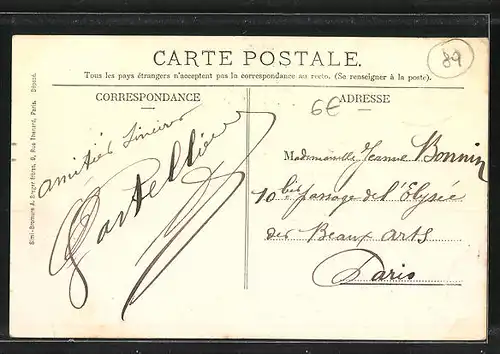 CARTE POSTALE.
89
Tous les pays étrangers n'acceptent pas la correspondance au recto. (Se renseigner à la poste).
CORRESPONDANCE
ADRESSE
6€
amitiés sincères
Mademoiselle Jeanne Bonnin
10 bis passage de l'Elysée
des Beaux Arts
Paris
Simi-Bromure A. Breger frères, 9, Rue Thenard, Paris. Déposé.